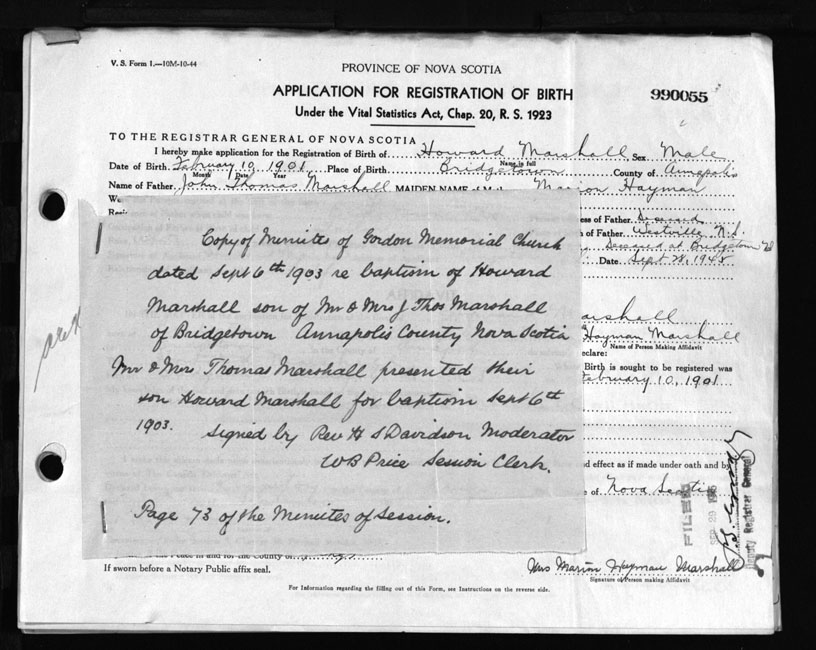 V. S. Form 1.—10M-10-44
PROVINCE OF NOVA SCOTIA
APPLICATION FOR REGISTRATION OF BIRTH
990055
Under the Vital Statistics Act, Chap. 20, R. S. 1923
TO THE REGISTRAR GENERAL OF NOVA SCOTIA
I hereby make application for the Registration of Birth of Howard Marshall Sex Male
Name in full
Date of Birth February 10, 1901 Place of Birth Bridgetown County of Annapolis
Month Date Year
Name of Father John Thomas Marshall MAIDEN NAME of Marion Hayman
ess of Father Deceased
h of Father Westville N.S.
Deceased at Bridgetown
Date Sept 28, 1945
Copy of Minutes of Gordon Memorial Church
dated Sept 6th 1903 re baptism of Howard
Marshall son of Mr & Mrs J Thos Marshall
of Bridgetown Annapolis County Nova Scotia
Mr & Mrs Thomas Marshall presented their
son Howard Marshall for baptism Sept 6th
1903. Signed by Rev H S Davidson Moderator
W B Price Session Clerk.
Page 73 of the Minutes of Session.
arshall
Hayman Marshall
Name of Person Making Affidavit
eclare:
Birth is sought to be registered was
February 10, 1901
nd effect as if made under oath and by
e of Nova Scotia
FILED
Deputy Registrar General
If sworn before a Notary Public affix seal.
Mrs Marion Hayman Marshall
Signature of Person making Affidavit
For Information regarding the filling out of this Form, see Instructions on the reverse side.